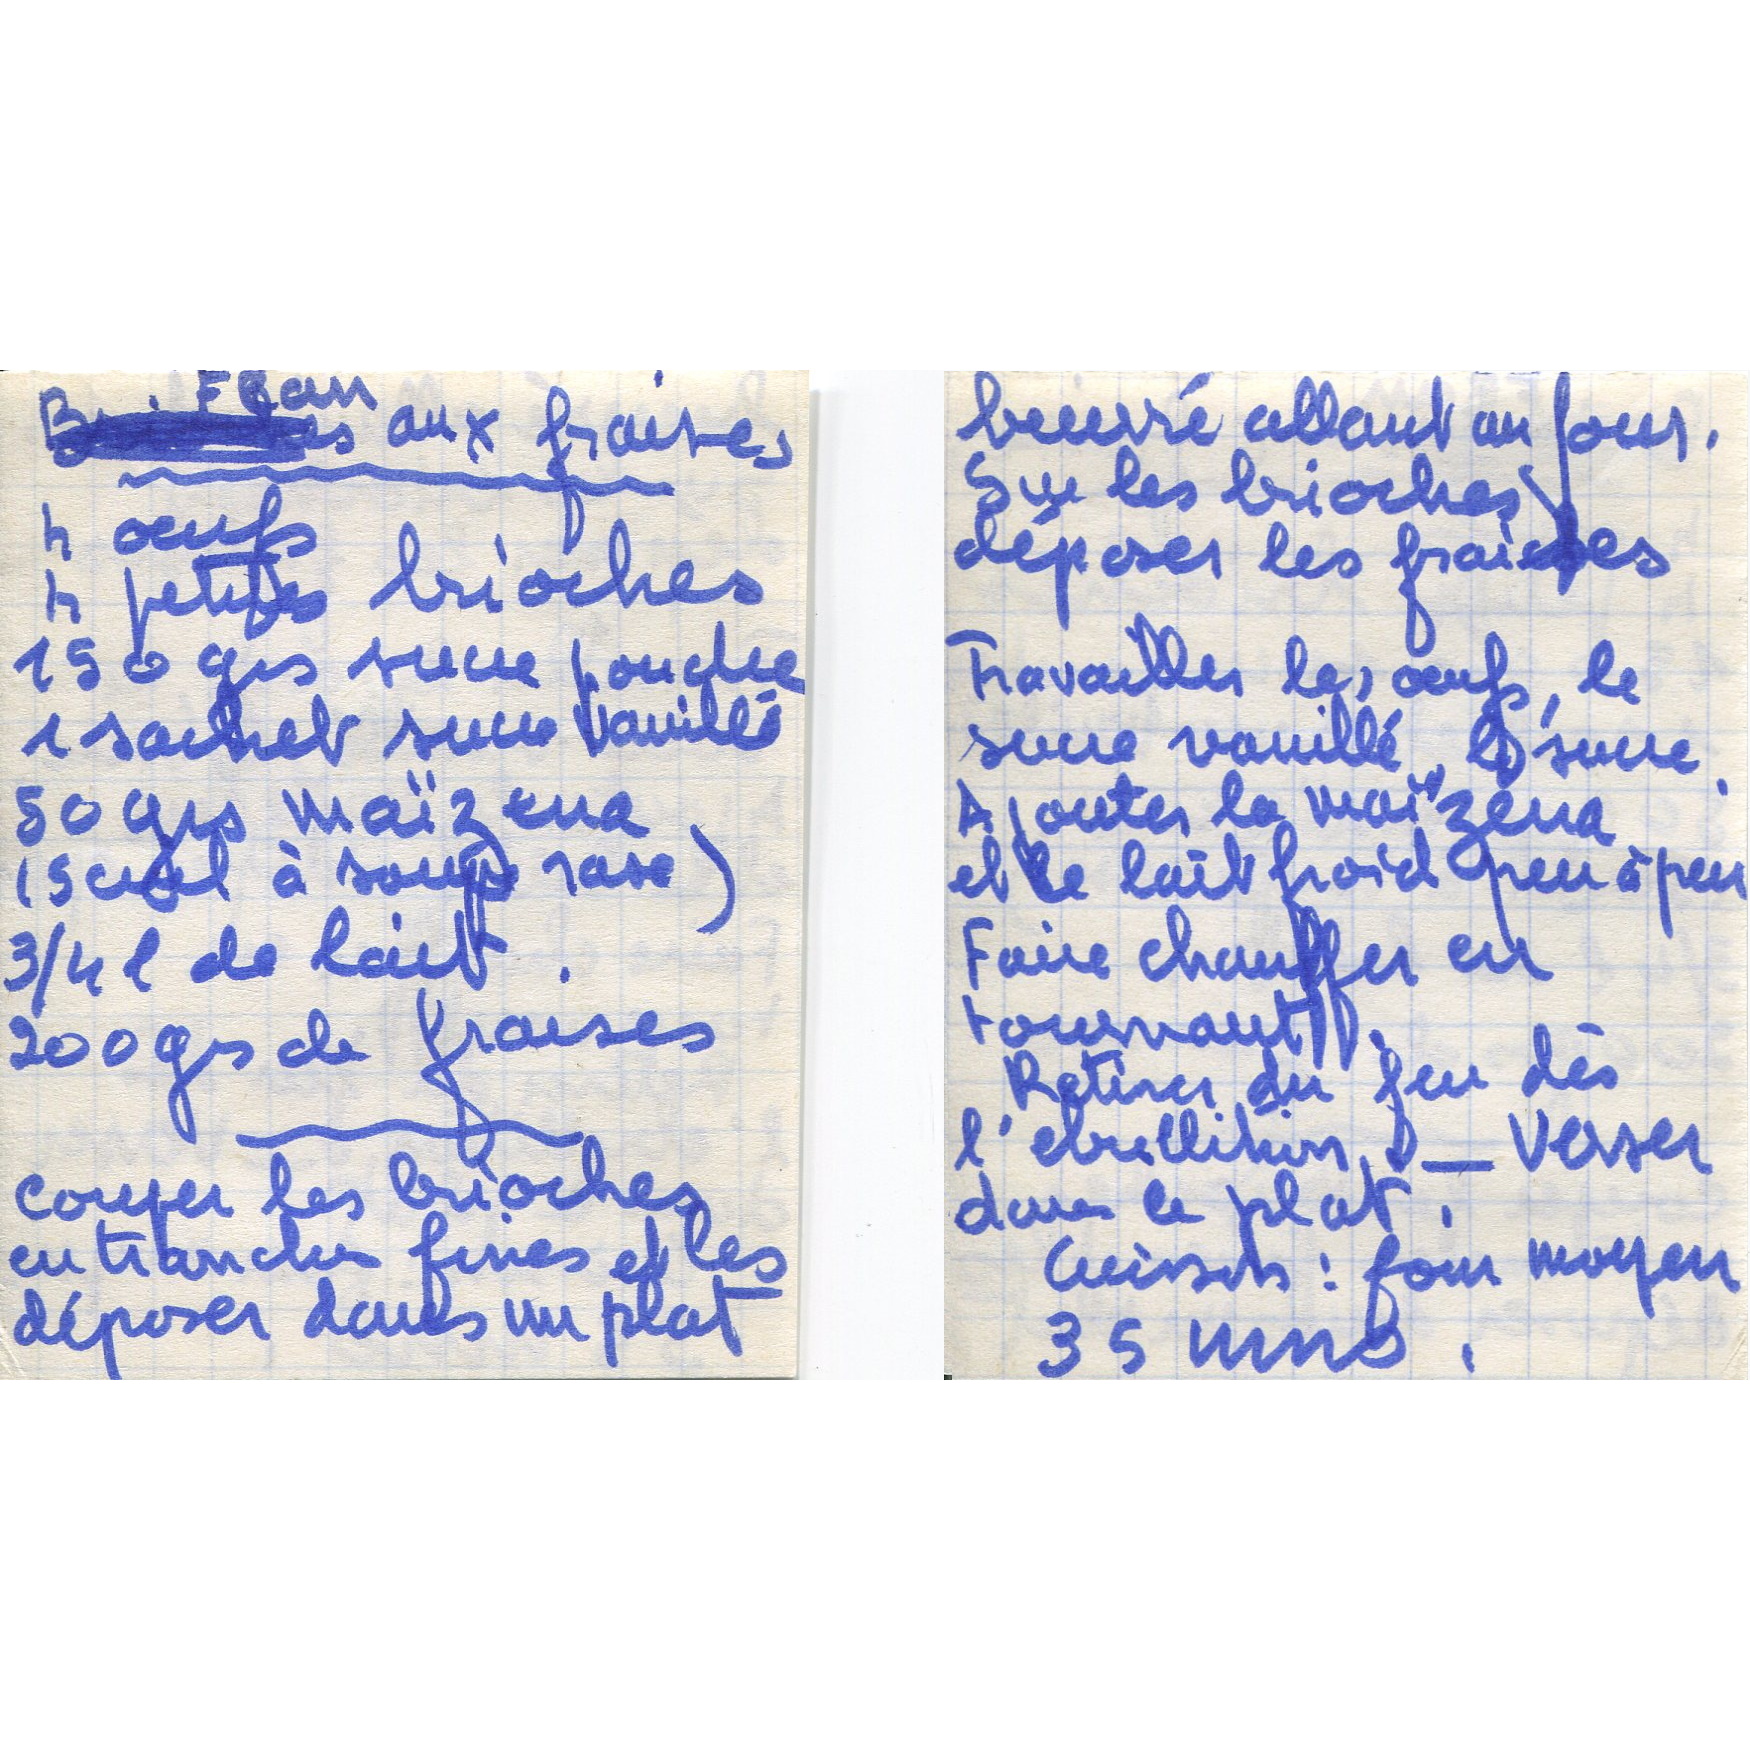 Flan aux fraises
4 oeufs
4 petites brioches
150 grs sucre poudre
1 sachet sucre vanillé
50 grs maïzena
(5 cuil à soupe rase)
3/4 l de lait.
200 grs de fraises
couper les brioches
en tranches fines et les
déposer dans un plat
beurré allant au four.
Sur les brioches
déposer les fraises
Travailler les oeufs, le
sucre vanillé, le sucre.
Ajouter la maïzena
et le lait froid peu à peu
Faire chauffer en
tournant.
Retirer du feu dès
l'ebullition. — Verser
dans le plat.
Cuisson : four moyen
35 mns.